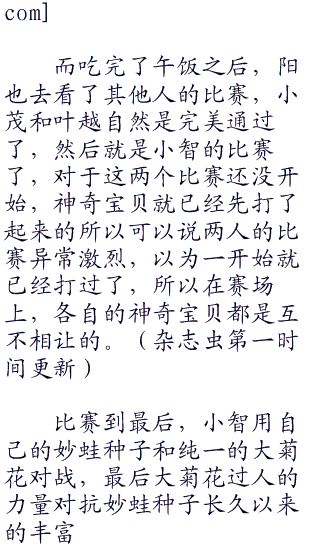 com]
　　而吃完了午饭之后，阳
也去看了其他人的比赛，小
茂和叶越自然是完美通过
了，然后就是小智的比赛
了，对于这两个比赛还没开
始，神奇宝贝就已经先打了
起来的所以可以说两人的比
赛异常激烈，以为一开始就
已经打过了，所以在赛场
上，各自的神奇宝贝都是互
不相让的。（杂志虫第一时
间更新）
　　比赛到最后，小智用自
己的妙蛙种子和纯一的大菊
花对战，最后大菊花过人的
力量对抗妙蛙种子长久以来
的丰富